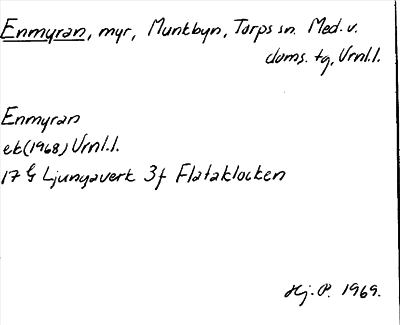 Enmyran, myr, Munkbyn, Torps sn. Med. v.
doms. tg, Vrnl.l.
Enmyran
ek (1968) Vrnl.l.
17 G Ljungaverk 3f Flataklocken
Hj. P. 1969.